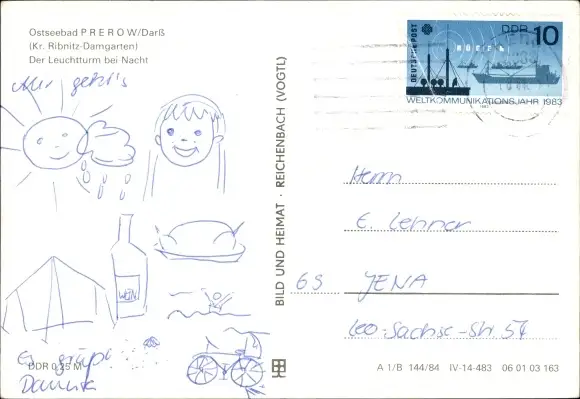 Ostseebad PREROW/Darß
(Kr. Ribnitz-Damgarten)
Der Leuchtturm bei Nacht
Mir geht's
WEIN
Es grüßt
DDR 0,25 M
BILD UND HEIMAT · REICHENBACH (VOGTL)
DEUTSCHE POST
DDR 10
WELTKOMMUNIKATIONSJAHR 1983
Herrn
E. Lehner
69 JENA
Leo-Sachse-Str. 54
A 1/B 144/84 IV-14-483 06 01 03 163